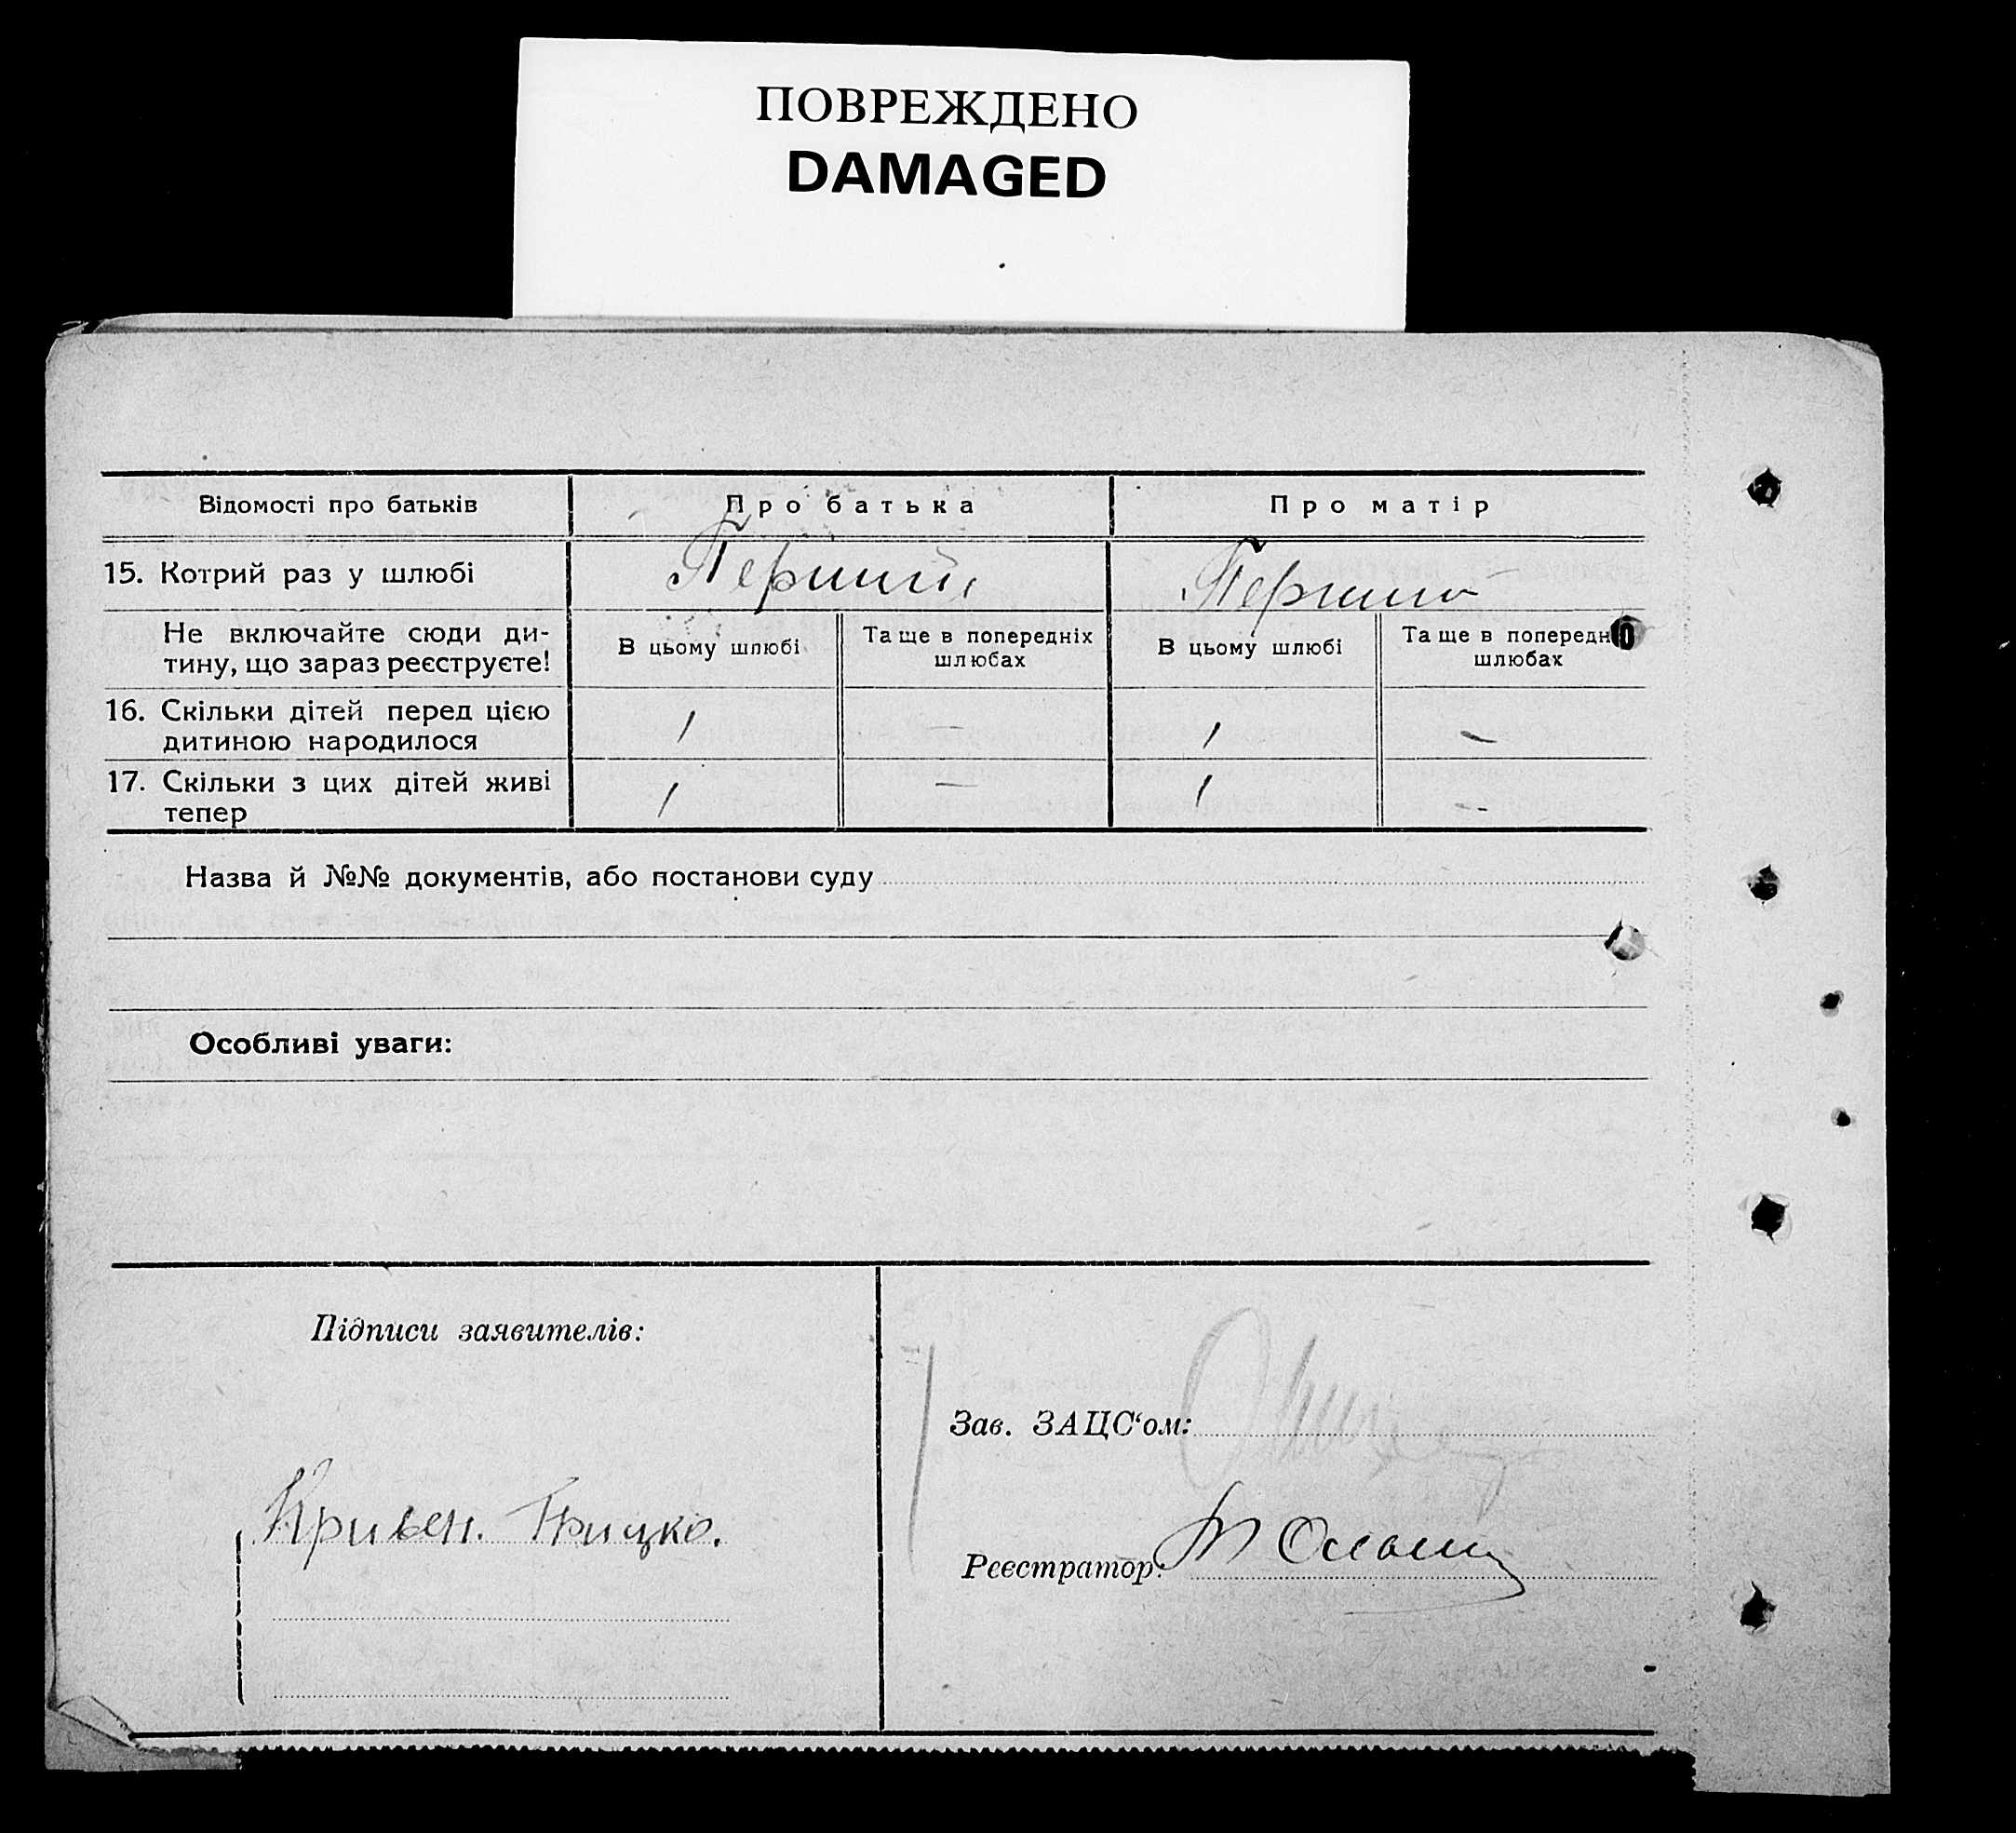 ПОВРЕЖДЕНО
DAMAGED
Відомості про батьків
Про батька
Про матір
15. Котрий раз у шлюбі
Перший
Перший
Не включайте сюди ди-
тину, що зараз реєструєте!
В цьому шлюбі
Та ще в попередніх
шлюбах
В цьому шлюбі
Та ще в попередн
шлюбах
16. Скільки дітей перед цією
дитиною народилося
1
—
1
—
17. Скільки з цих дітей живі
тепер
1
—
1
--
Назва й №№ документів, або постанови суду
Особливі уваги:
Підписи заявителів:
Зав. ЗАЦС‘ом:
Кривен. Грицко.
Реєстратор: